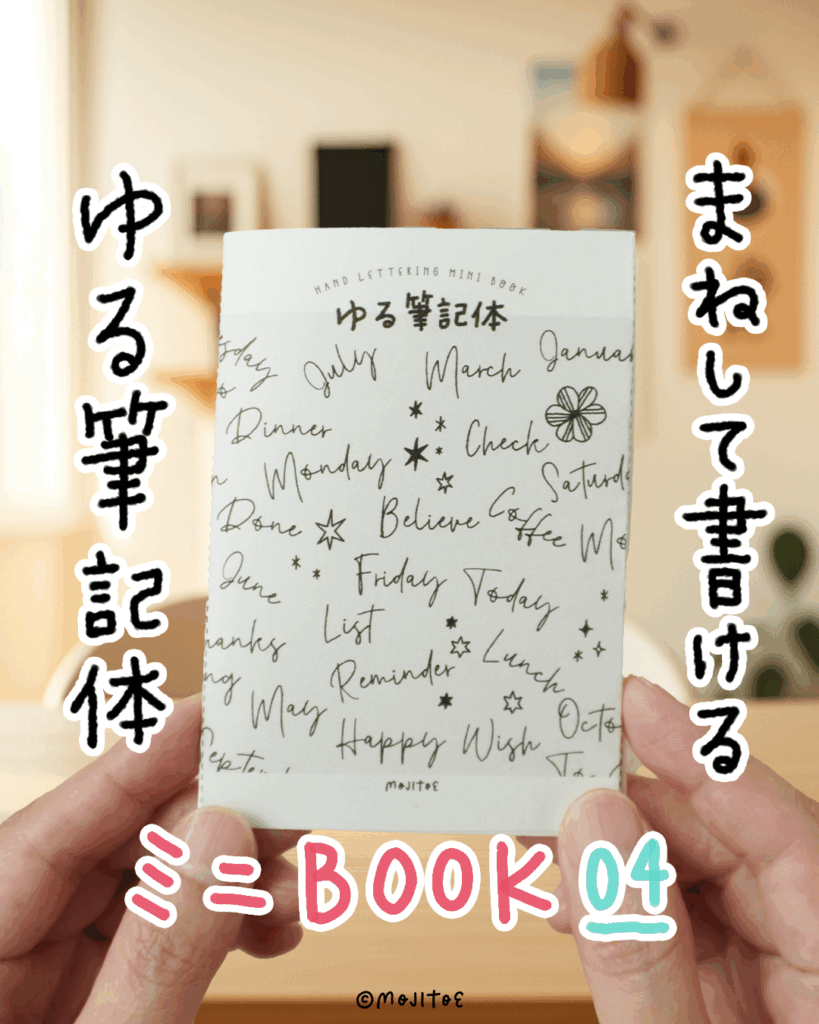 まねして書ける
ゆる筆記体
HAND LETTERING MINI BOOK
ゆる筆記体
sday July March Januar
Dinner Check
Monday Saturd
Done Believe Coffee Mo
June Friday Today
List
anks Lunch
ng Reminder
May Octo
Happy Wish
eptem To
MOJITOE
ミニBOOK 04
©MOJITOE